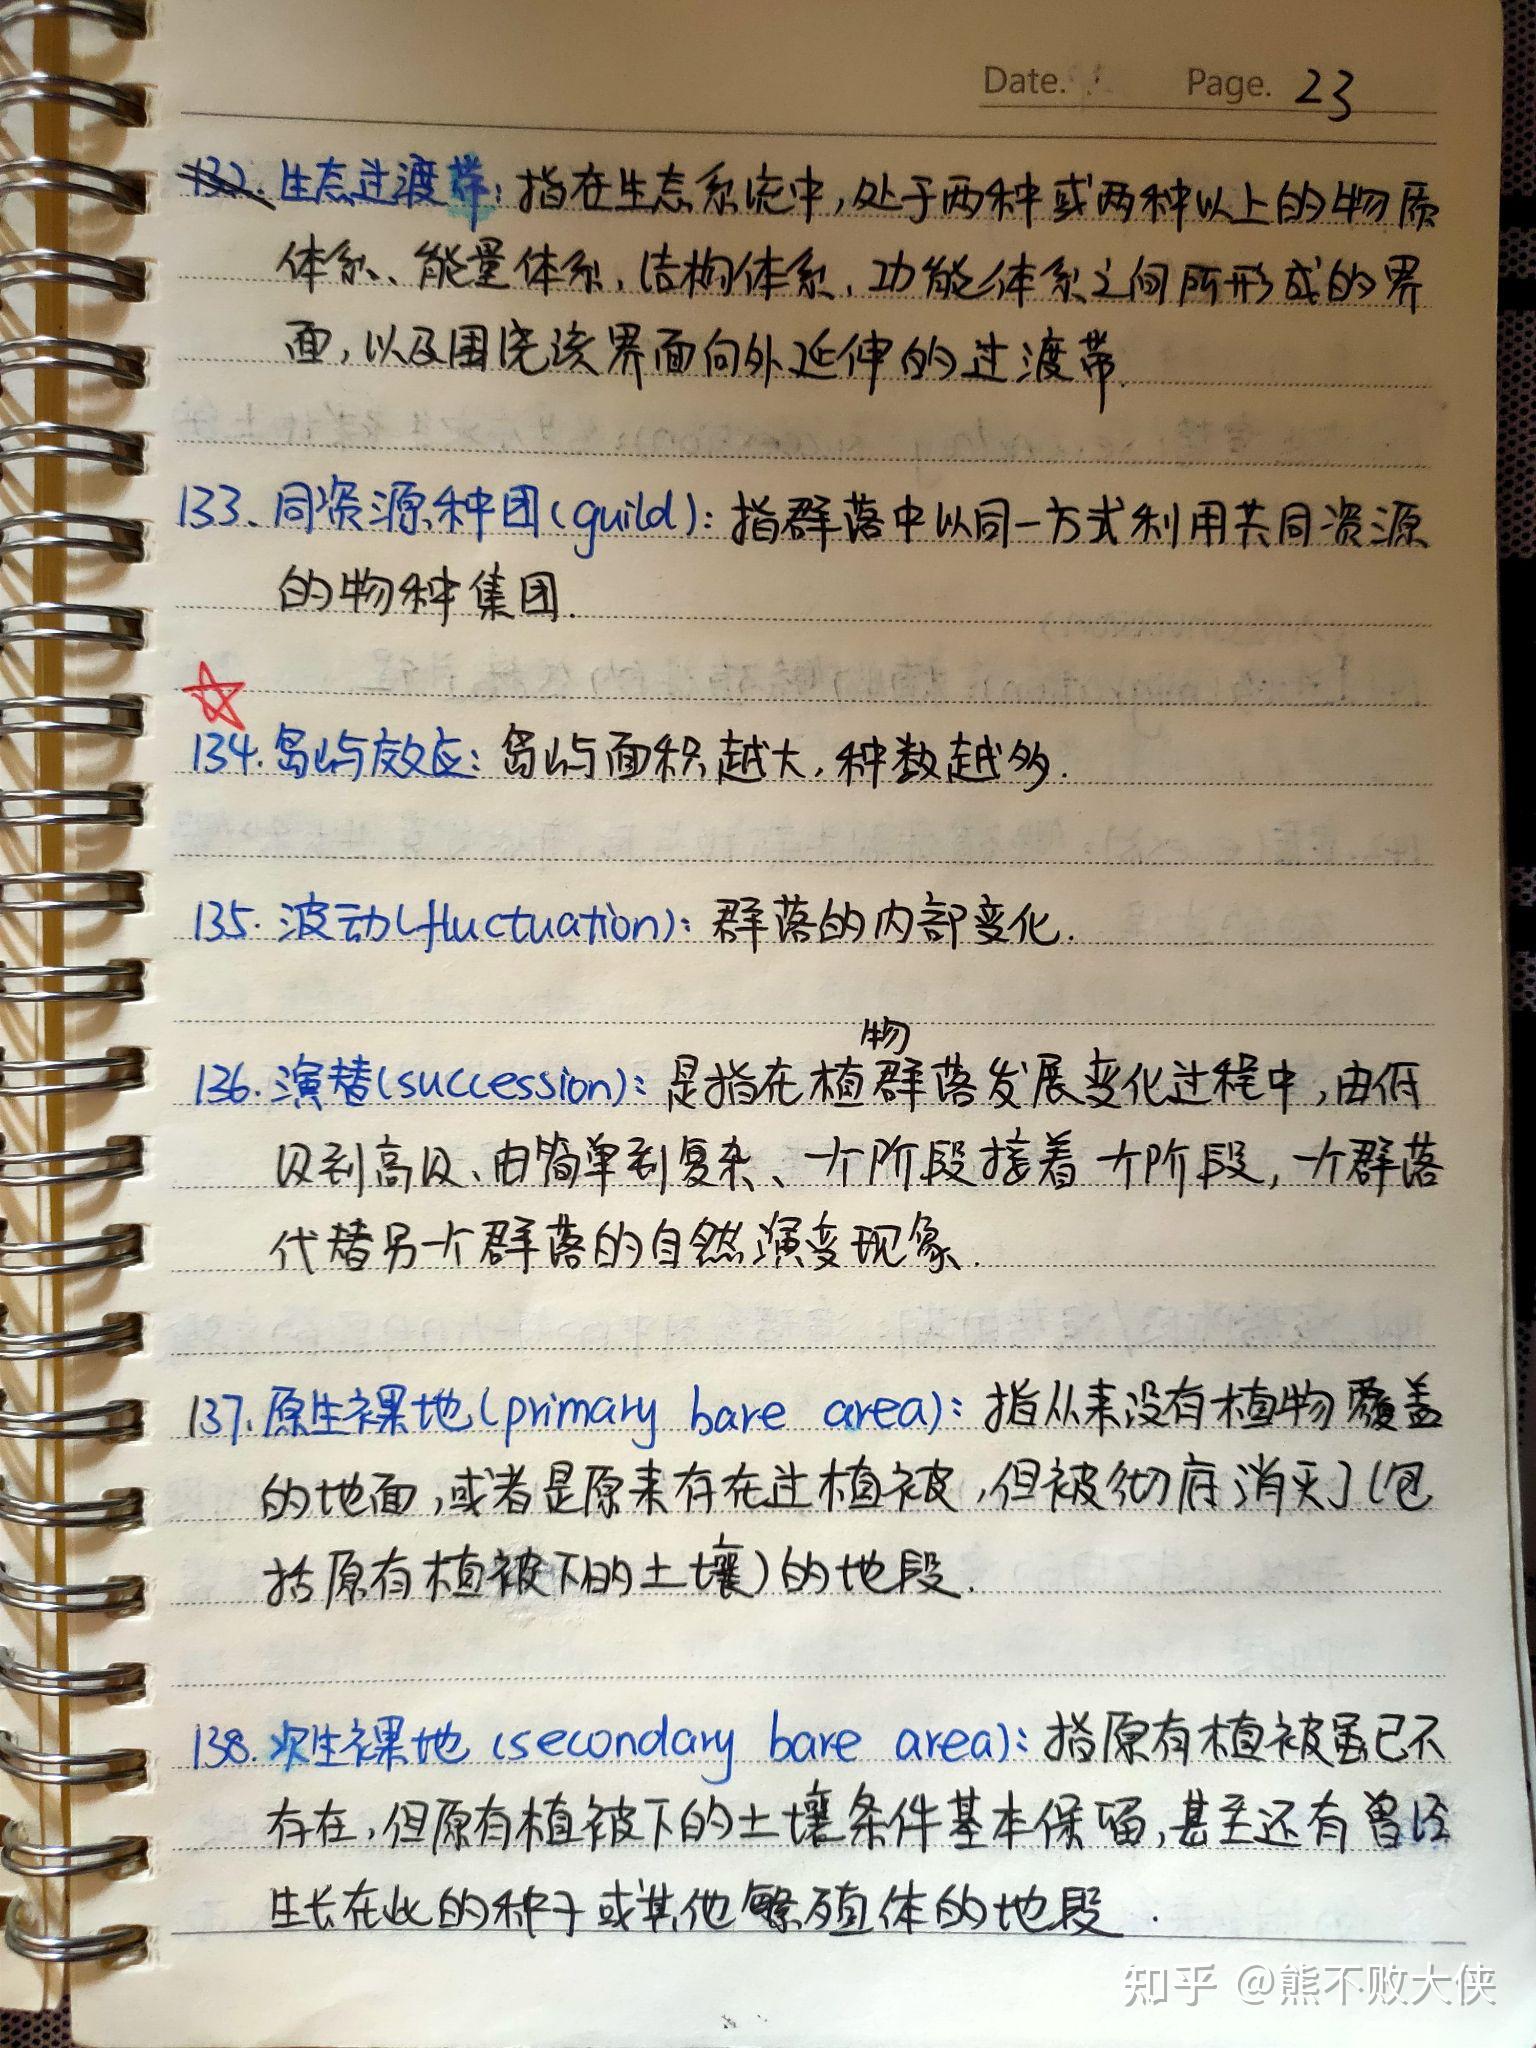 Date. Page. 23
132. 生态过渡带: 指在生态系统中,处于两种或两种以上的物质
体系、能量体系,结构体系,功能体系之间所形成的界
面,以及围绕该界面向外延伸的过渡带.
133. 同资源种团(guild): 指群落中以同一方式利用共同资源
的物种集团.
134. 岛屿效应: 岛屿面积越大,种数越多.
135. 波动(fluctuation): 群落的内部变化.
物
136. 演替(succession): 是指在植群落发展变化过程中,由低
级到高级、由简单到复杂、一个阶段接着一个阶段,一个群落
代替另一个群落的自然演变现象.
137. 原生裸地(primary bare area): 指从来没有植物覆盖
的地面,或者是原来存在过植被,但被彻底消灭了(包
括原有植被下的土壤)的地段.
138. 次生裸地 (secondary bare area): 指原有植被虽已不
存在,但原有植被下的土壤条件基本保留,甚至还有曾经
生长在此的种子或其他繁殖体的地段.
知乎 @熊不败大侠